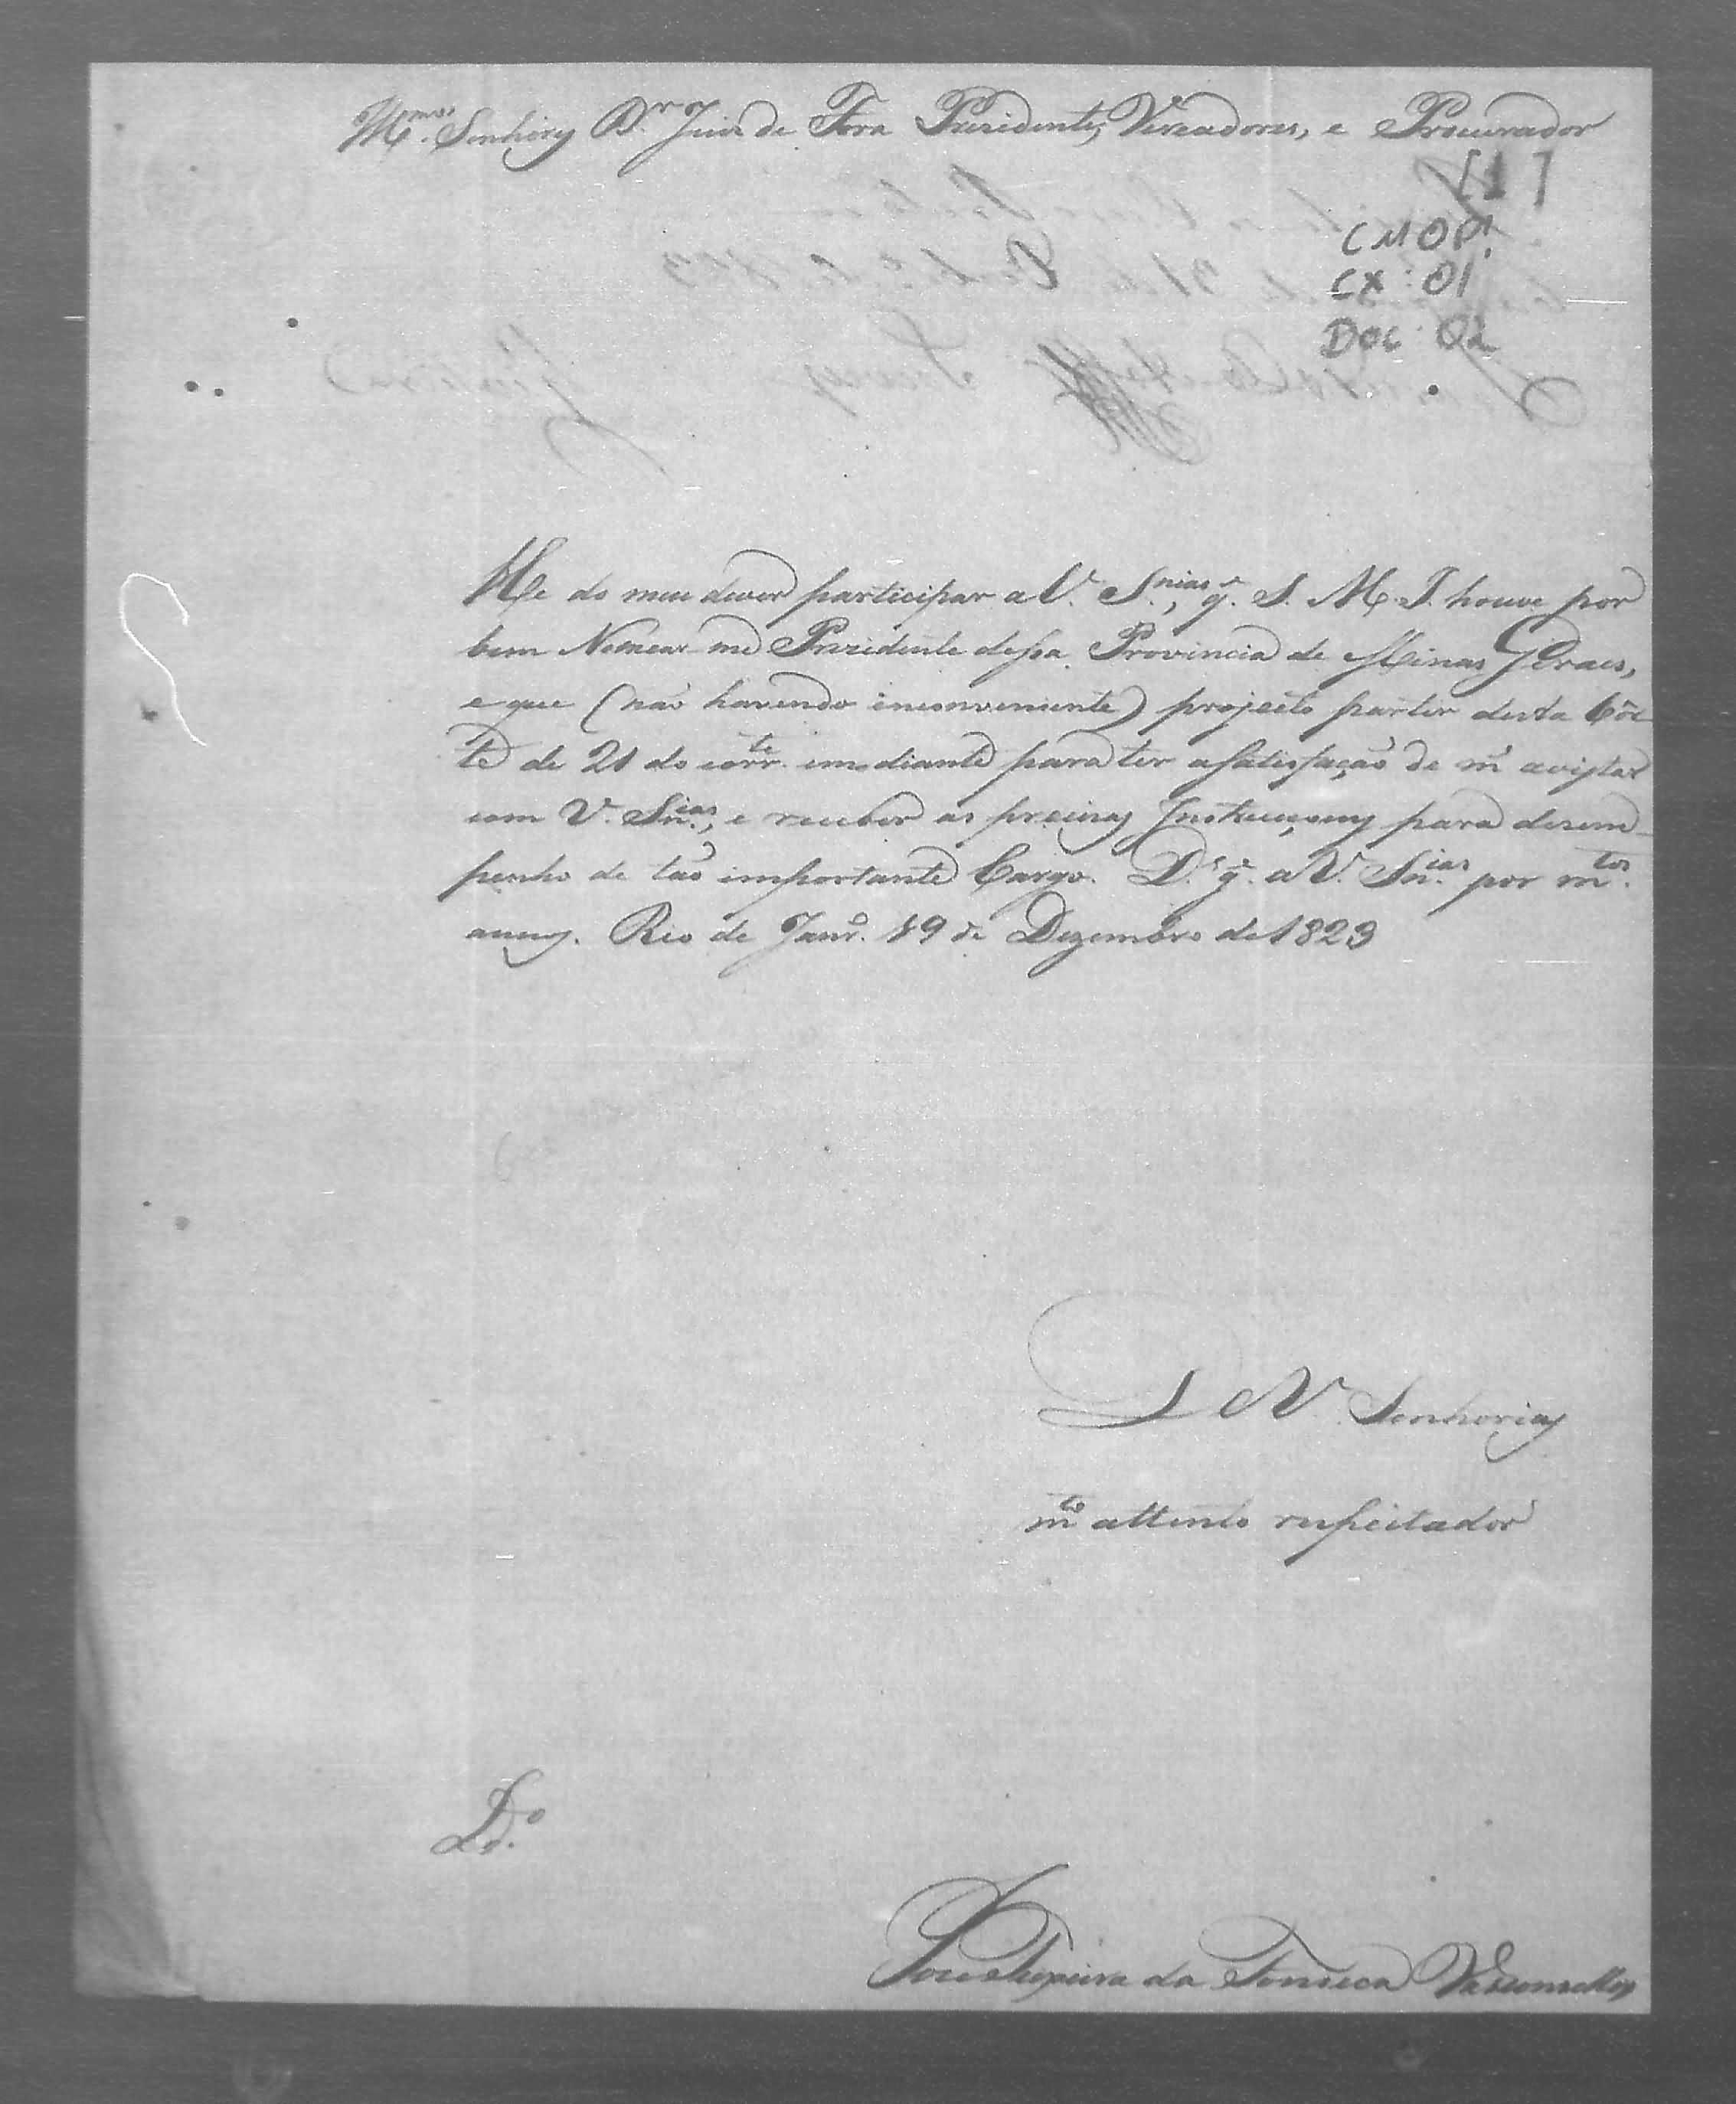 Ill.mos Senhores D.r Juiz de Fora Prezidente, Vereadores, e Procurador
[1]
CMOP.
CX: 01
DOC: 02
He do meu dever participar a V. S.nias, q. S. M. I. houve por
bem Nomear-me Prezidente dessa Provincia de Minas Geraes,
e que (não havendo inconveniente) projecto partir desta Côr-
te de 21 do corr.te em diante para ter a satisfação de m.e avistar
com V. Sn.ias, e receber as precizas Instrucçoens para desem-
penho de tão importante Cargo. D.s g.e a V. Sn.ias por m.tos
annos. Rio de Janr.o 19 de Dezembro de 1823
D V. Senhorias
m.to attento respeitador
José Teixeira da Fonseca Vasconcellos